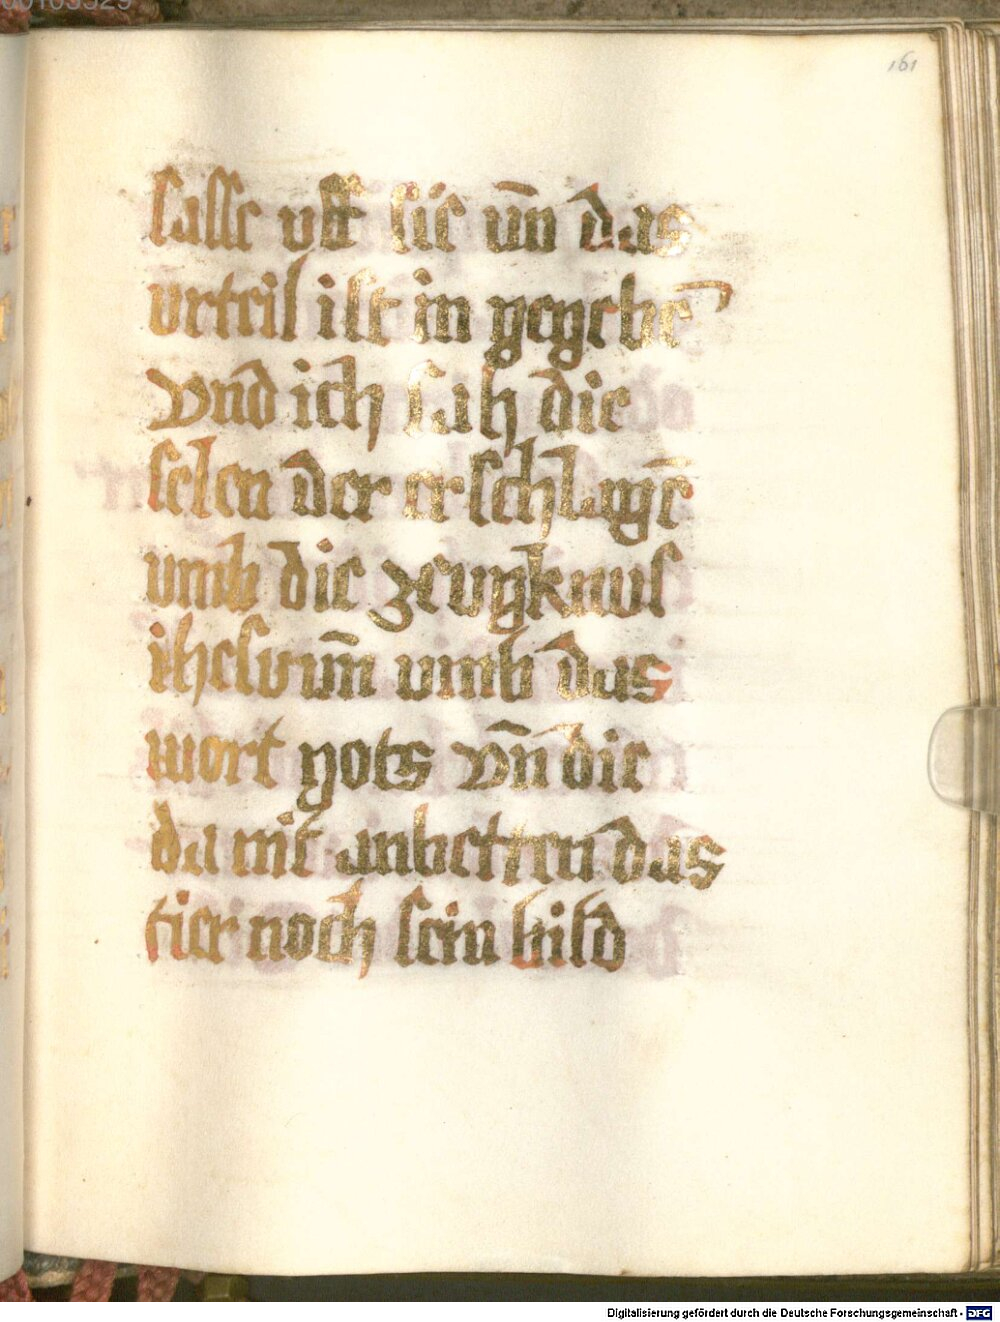 161
sasse vff sie vn̄ das
vrteil ist in gegebē
vnd ich sah die
selen der erschlagē
vmb die zeugknus
ihesu vm̄ vmb das
wort gots vn̄ die
da nit anbetten das
tier noch sein bild
Digitalisierung gefördert durch die Deutsche Forschungsgemeinschaft - DFG